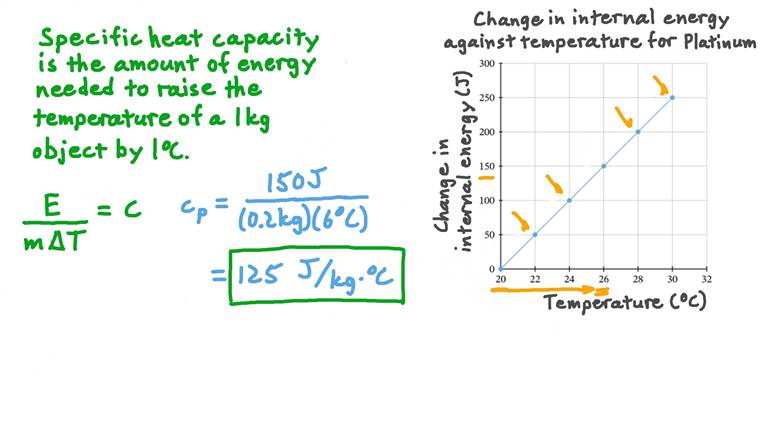 Specific heat capacity
is the amount of energy
needed to raise the
temperature of a 1kg
object by 1°C.
E / mΔT = C
c_p = 150J / (0.2kg)(6°C)
= 125 J/kg·°C
Change in internal energy
against temperature for Platinum
Change in
internal energy (J)
300
250
200
150
100
50
0
20 22 24 26 28 30 32
Temperature (°C)